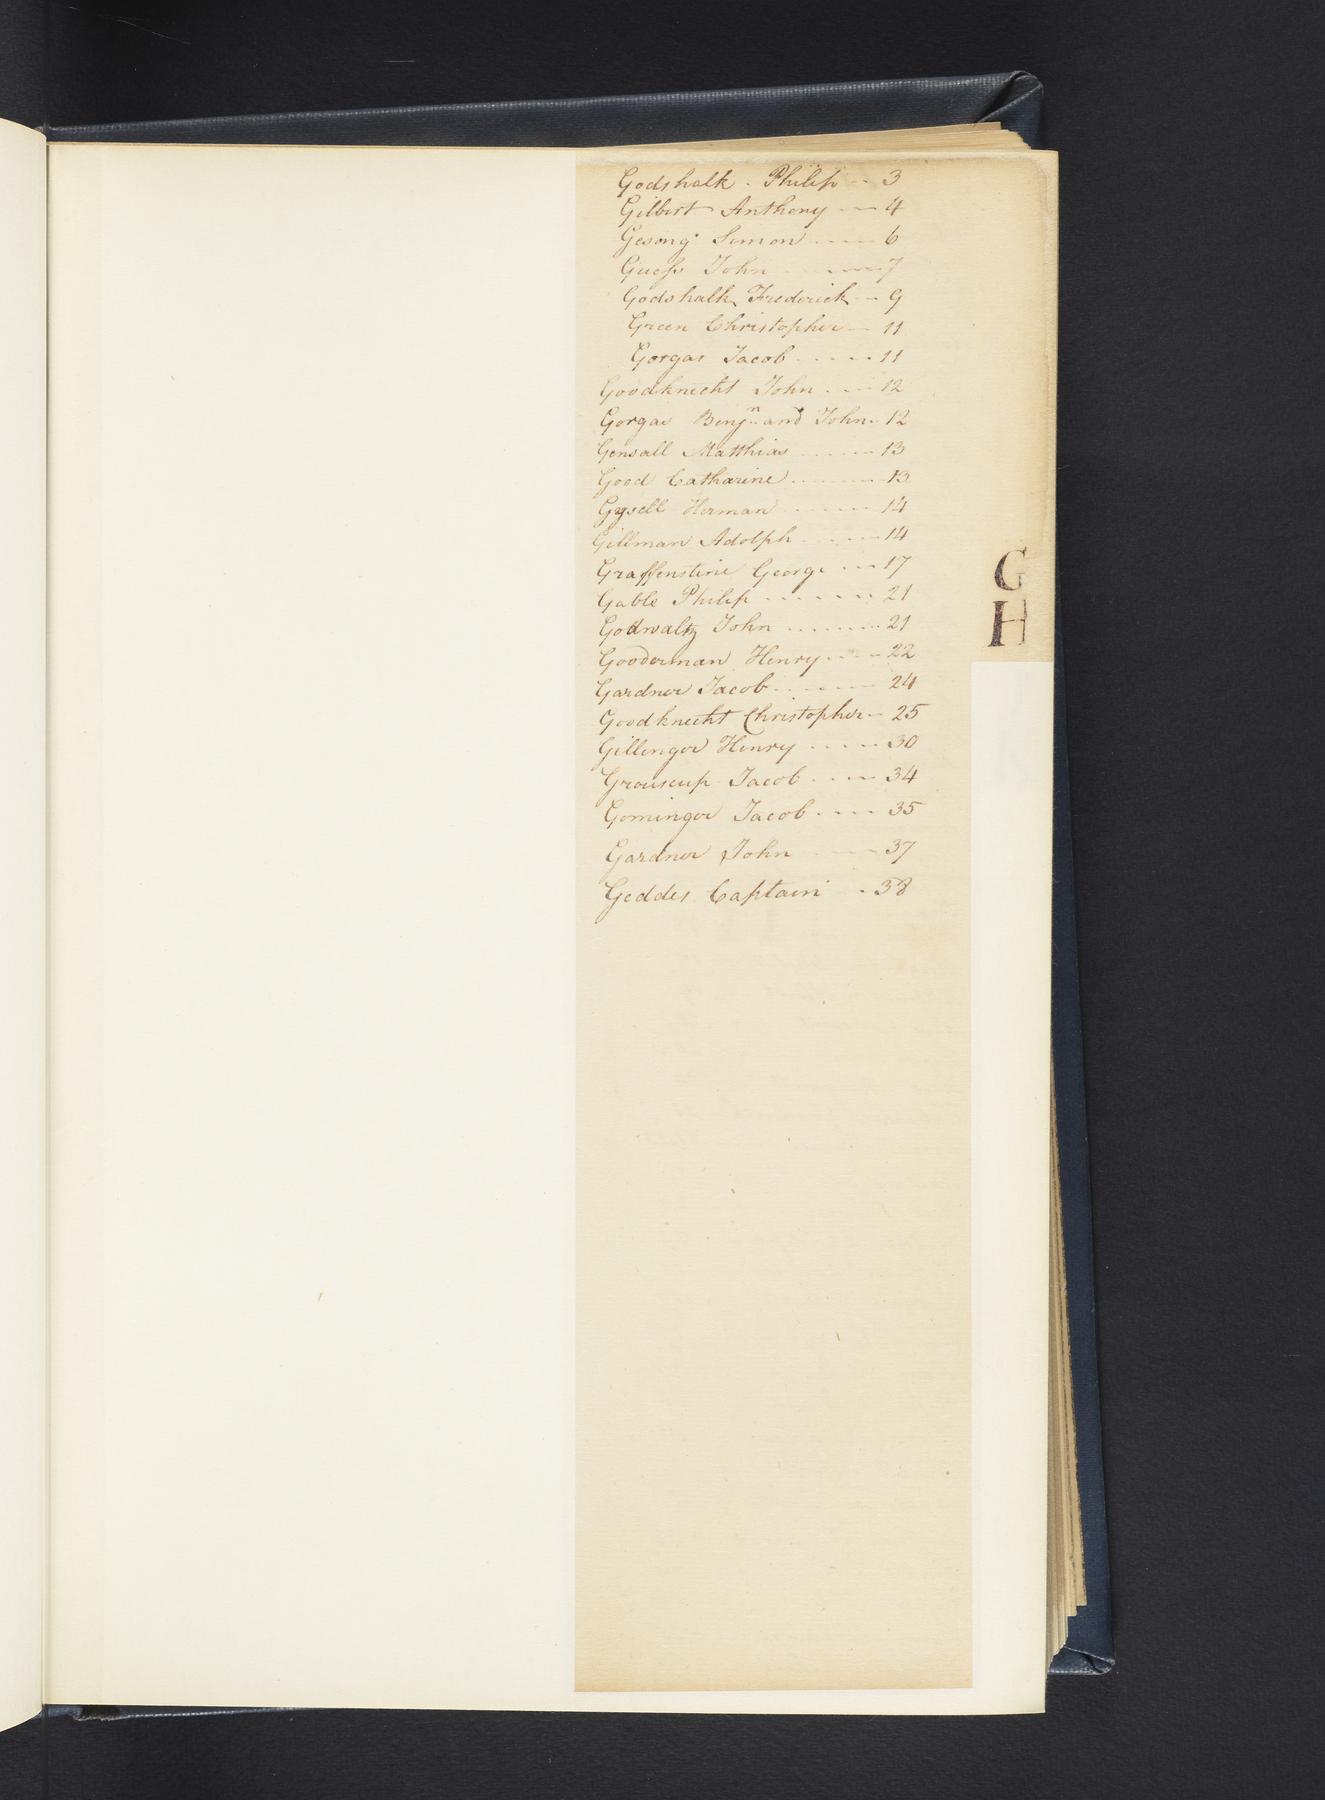 Godshalk . Philip -- 3
Gilbert Anthony --- 4
Gesong Simon ----- 6
Guess John ------- 7
Godshalk Frederick -- 9
Green Christopher -- 11
Gorgas Jacob ----- 11
Goodknecht John ---- 12
Gorgas Benjn and John .. 12
Gensall Matthias ------ 13
Good Catharine -------- 13
Gysell Herman ------- 14
Gillman Adolph ------ 14
Graffenstine George --- 17
Gable Philip ------- 21
Godwaltz John ------- 21
Gooderman Henry ---- 22
Gardner Jacob ------ 24
Goodknecht Christopher -- 25
Gillinger Henry ----- 30
Grouscup Jacob ---- 34
Gominger Jacob ---- 35
Gardner John ---- 37
Geddes Captain - 38
G
H